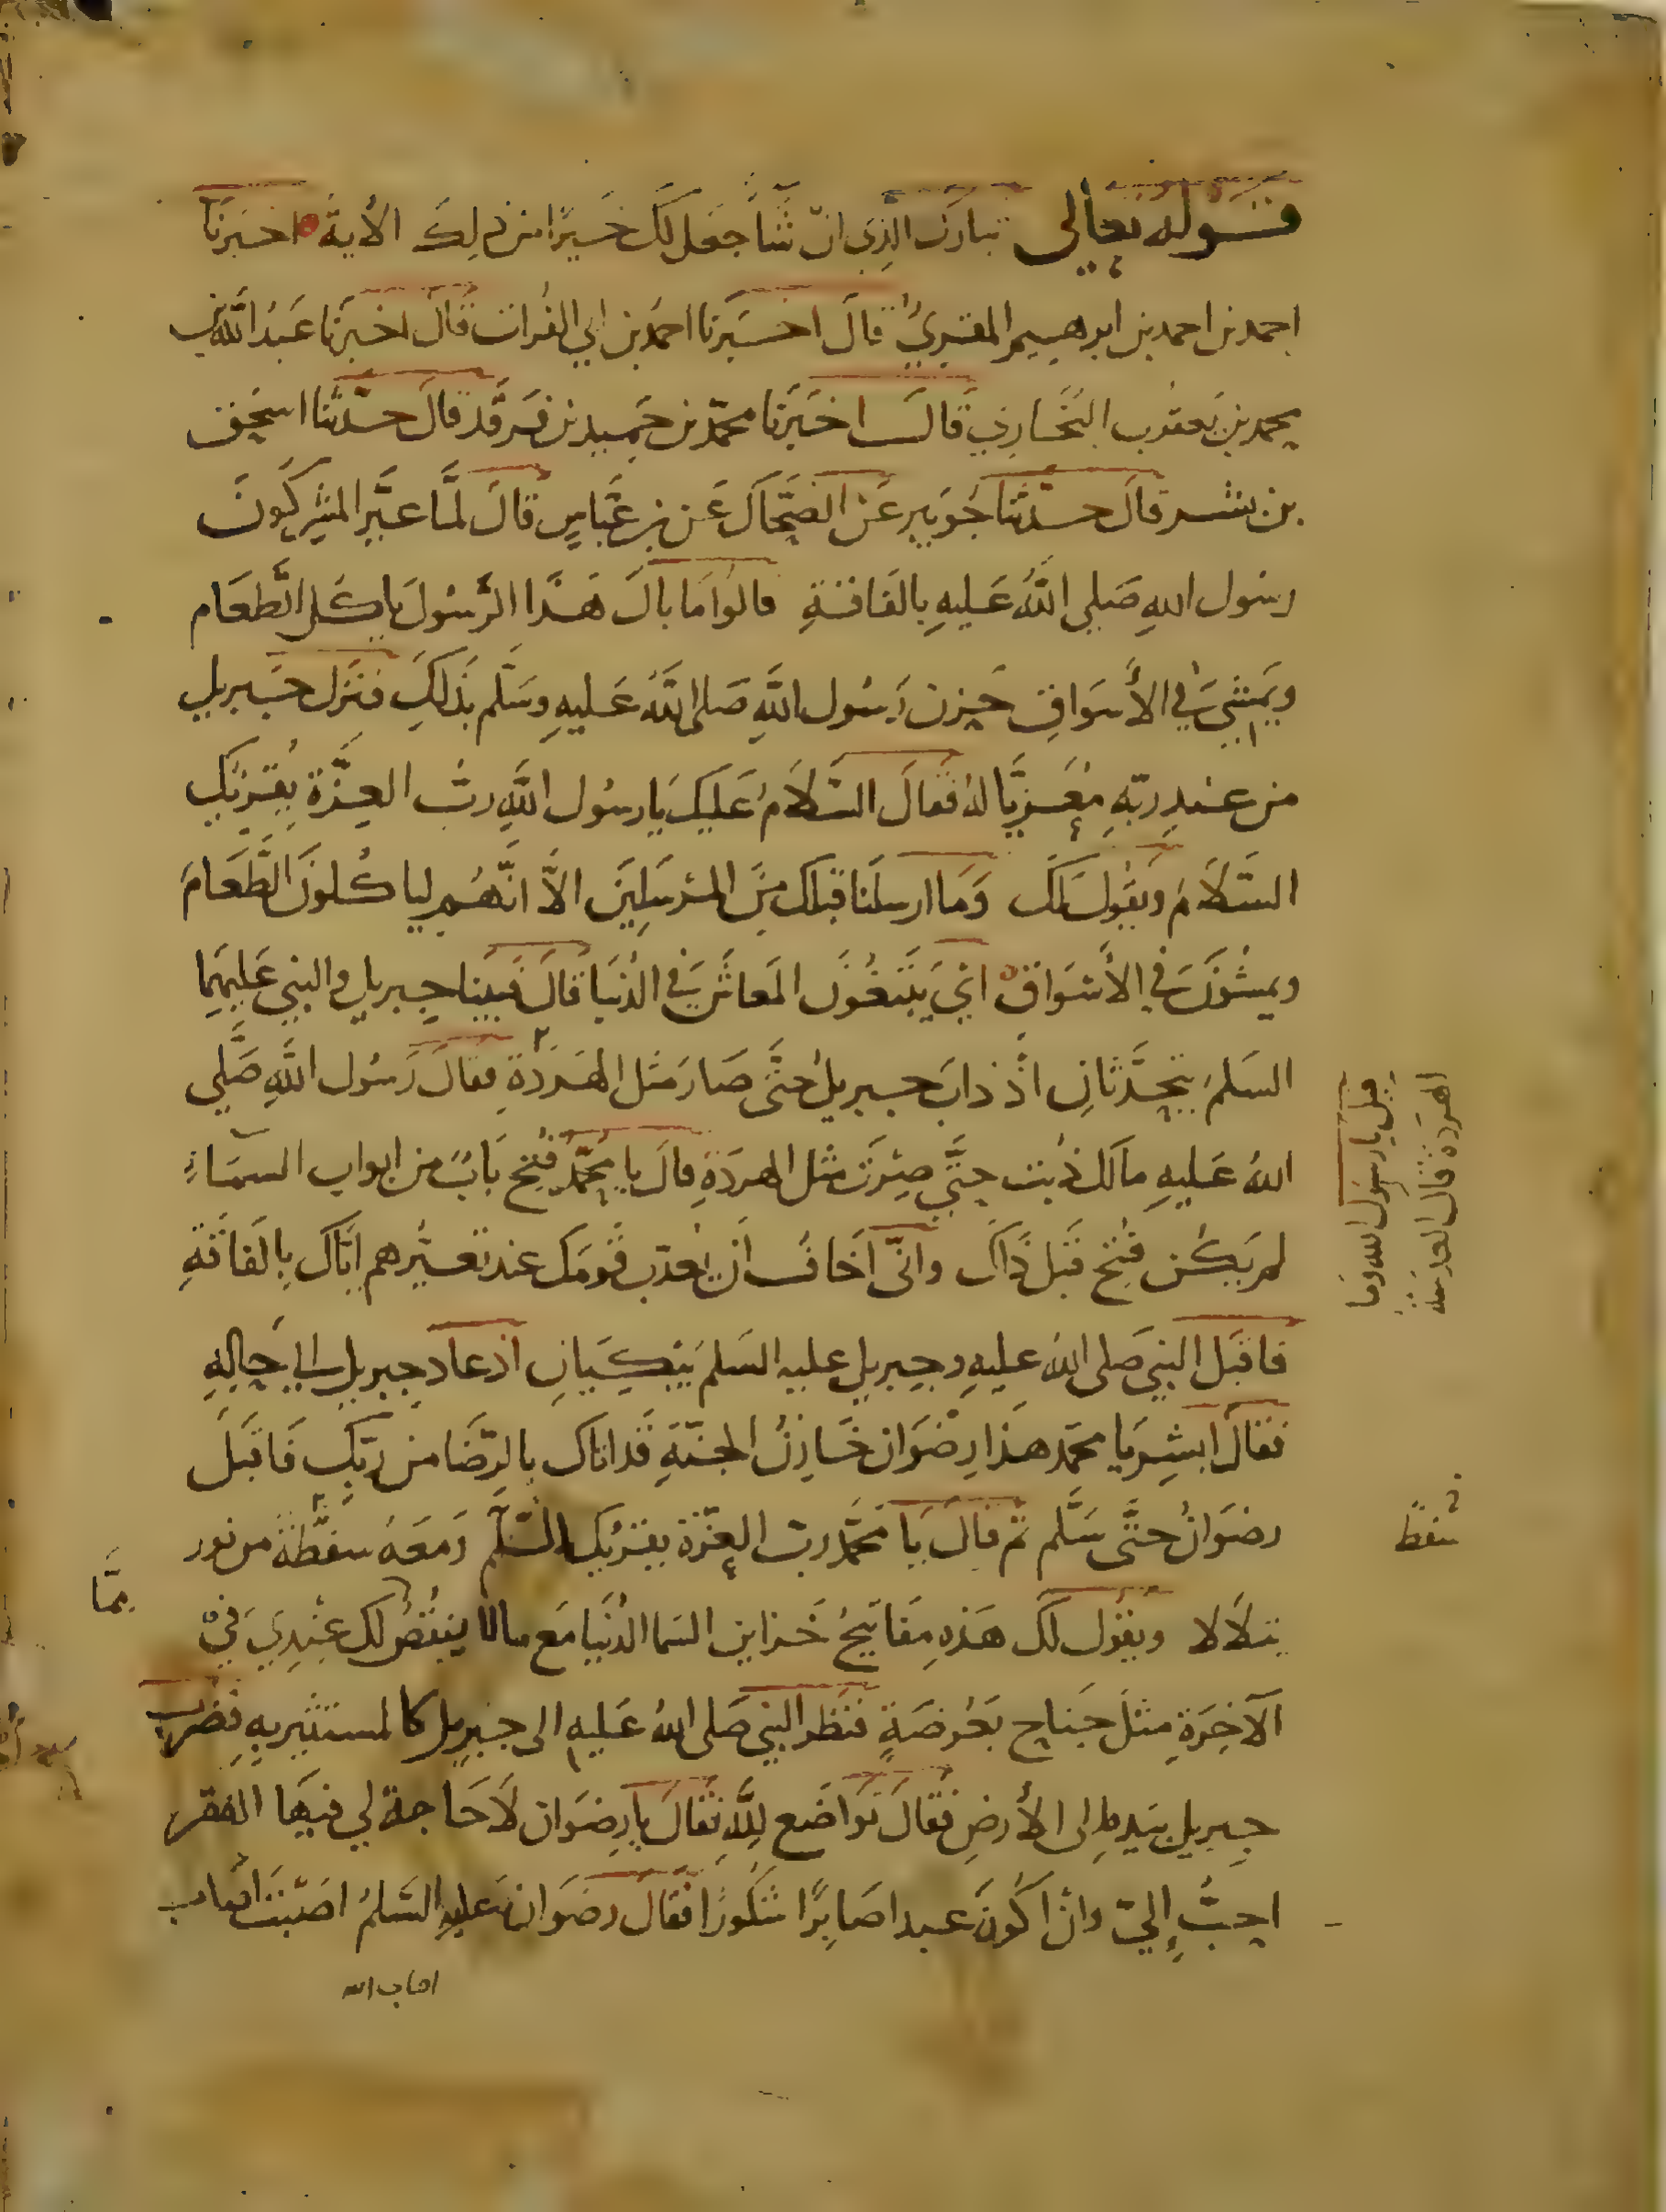 قوله تعالى تبارك الذي ان شا جعل لك خيرا من ذلك الأية اخبرنا
احمد بن احمد بن ابرهيم المقبري قال اخبرنا احمد بن ابي الفرات قال اخبرنا عبد الله بن
محمد بن يعقوب البخاري قال اخبرنا محمد بن حميد بن فرقد قال حدثنا اسحق
بن بشر قال حدثنا جويبر عن الضحاك عن بن عباس قال لما عير المشركون
رسول الله صلى الله عليه بالفاقة قالوا ما بال هذا الرسول ياكل الطعام
ويمشي في الأسواق حزن رسول الله صلى الله عليه وسلم بذلك فنزل جبريل
من عند ربه معزيا له فقال السلام عليك يا رسول الله رب العزة يقريك
السلام ويقول لك وما ارسلنا قبلك من المرسلين الا انهم لياكلون الطعام
ويمشون في الأسواق اي يبتغون المعاش في الدنيا قال فبينا جبريل والنبي عليهما
السلم يتحدثان اذ ذاب جبريل حتى صار مثل الهردة فقال رسول الله صلى
الله عليه مالك ذبت حتى صرت مثل الهردة قال يا محمد فتح باب من ابواب السماء
لم يكن فتح قبل ذاك واني اخاف ان يعذب قومك عند تعييرهم اياك بالفاقة
فاقبل النبي صلى الله عليه وجبريل عليه السلم يبكيان اذ عاد جبريل الى حاله
فقال ابشر يا محمد هذا رضوان خازن الجنة قد اتاك بالرضا من ربك فاقبل
رضوان حتى سلم ثم قال يا محمد رب العزة يقريك السلم ومعه سفطة من نور
يتلالا ويقول لك هذه مفاتيح خزاين السما الدنيا مع مالا ينقص لك عندي في
الآخرة مثل جناح بعوضة فنظر النبي صلى الله عليه الى جبريل كالمستشير به فضرب
جبريل بيده الى الأرض فقال تواضع لله فقال يا رضوان لا حاجة لي فيها الفقر
احب إلي وان اكون عبدا صابرا شكورا فقال رضوان عليه السلم اصبت اصاب
اصاب الله
قيل يا رسول الله وما
الهردة قال العدسة
سفط
مما